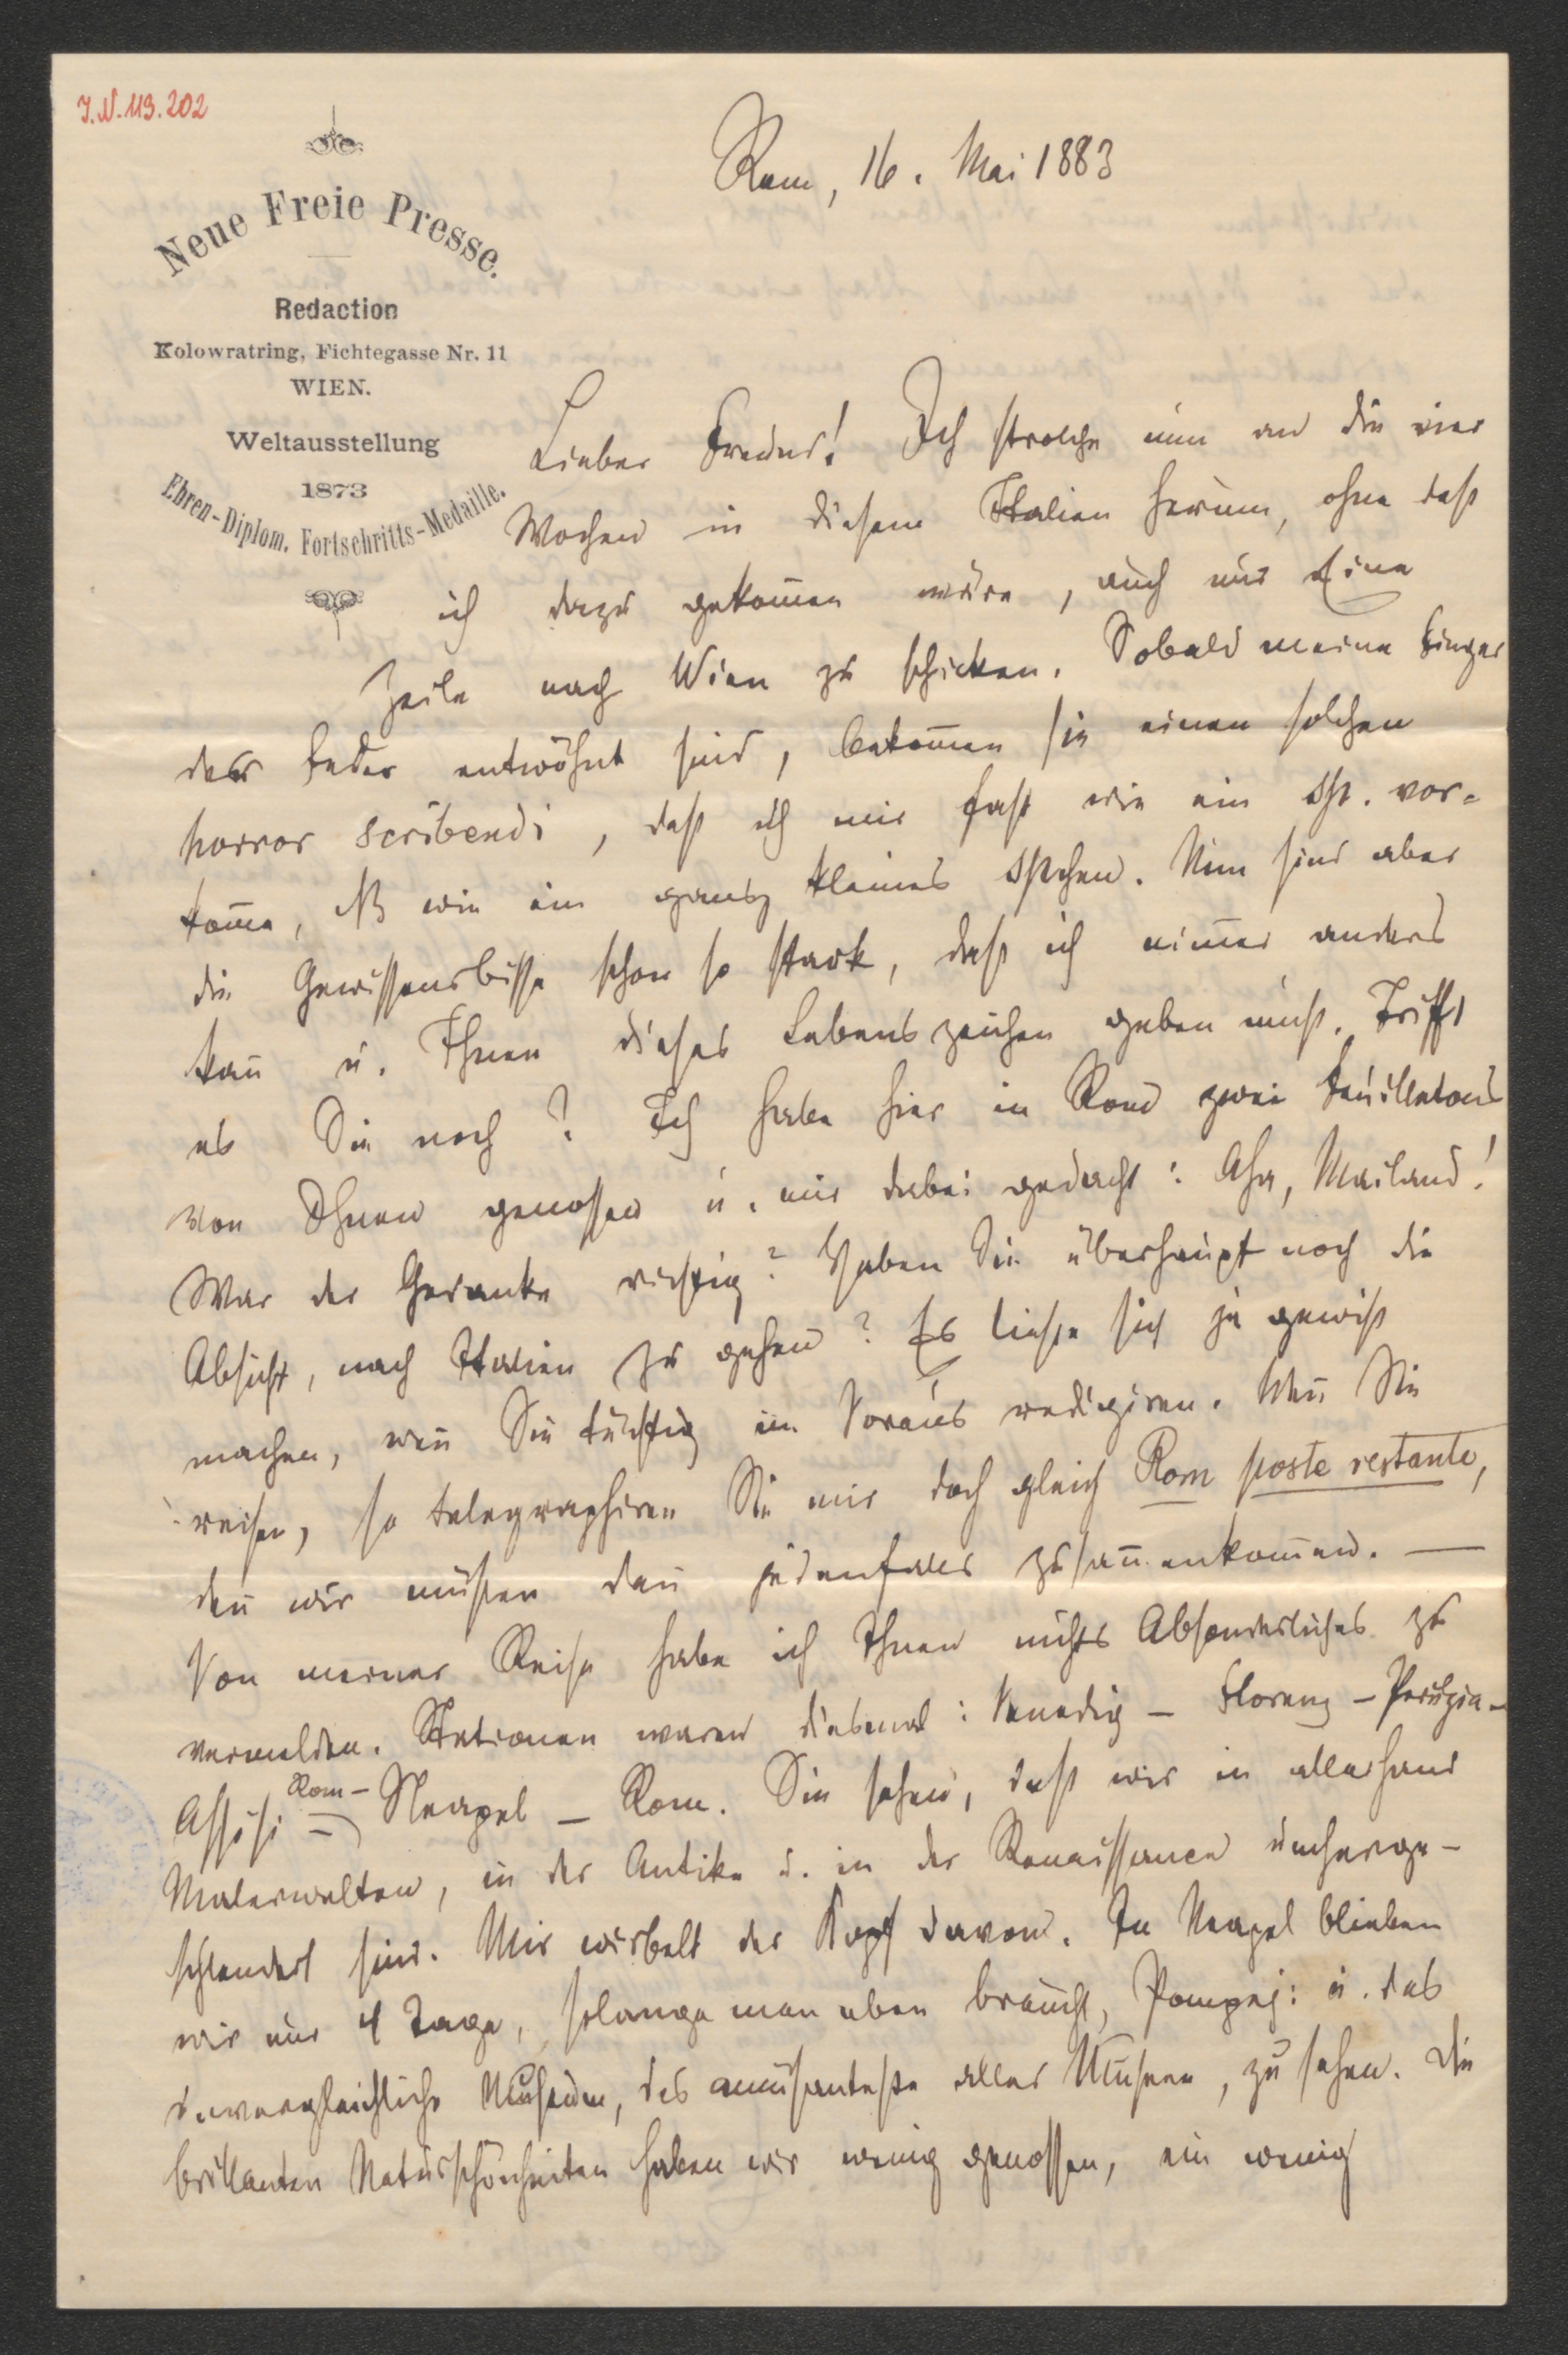 J.N. 113.202
Neue Freie Presse.
Redaction
Kolowratring, Fichtegasse Nr. 11
WIEN.
Weltausstellung
1873
Ehren-Diplom. Fortschritts-Medaille.
Rom, 16. Mai 1883
Lieber Freund! Ich strolche nun an die vier
Wochen in diesem Italien herum, ohne daß
ich dazu gekom̅en wäre, auch nur Eine
Zeile nach Wien zu schicken. Sobald meine Finger
der Feder entwöhnt sind, bekom̅en sie einen solchen
horror scribendi, daß ich mir fast wie ein vor-
kom̅e, NB wie ein ganz kleines. Nun sind aber
die Gewissensbisse schon so stark, daß ich nim̅er anders
kan̅ u. Ihnen dieses Lebenszeichen geben muß. Trifft
es Sie noch? Ich habe hier in Rom zwei Feuilletons
von Ihnen genossen u. mir dabei gedacht: Aha, Mailand!
War der Gedanke richtig? Haben Sie überhaupt noch die
Absicht, nach Italien zu gehen? Es ließe sich ja gewiß
machen, wen̅ Sie tüchtig im Voraus redigiren. Wen̅ Sie
reisen, so telegraphiren Sie mir doch gleich Rom poste restante,
den̅ wir müßen dan̅ jedenfalls zusam̅enkom̅en. —
Von meiner Reise habe ich Ihnen nichts Absonderliches zu
vermelden. Stationen waren diesmal: Venedig – Florenz – Perugia –
Assisi – Rom – Neapel – Rom. Sie sehen, daß wir in allerhand
Malerwelten, in der Antike u. in der Renaissance umherge-
schlendert sind. Mir wirbelt der Kopf davon. In Neapel blieben
wir nur 4 Tage, solange man eben braucht, Pompeji u. das
unvergleichliche Museum, das amüsanteste aller Museen, zu sehen. Die
brillanten Naturschönheiten haben wir wenig genossen, ein wenig